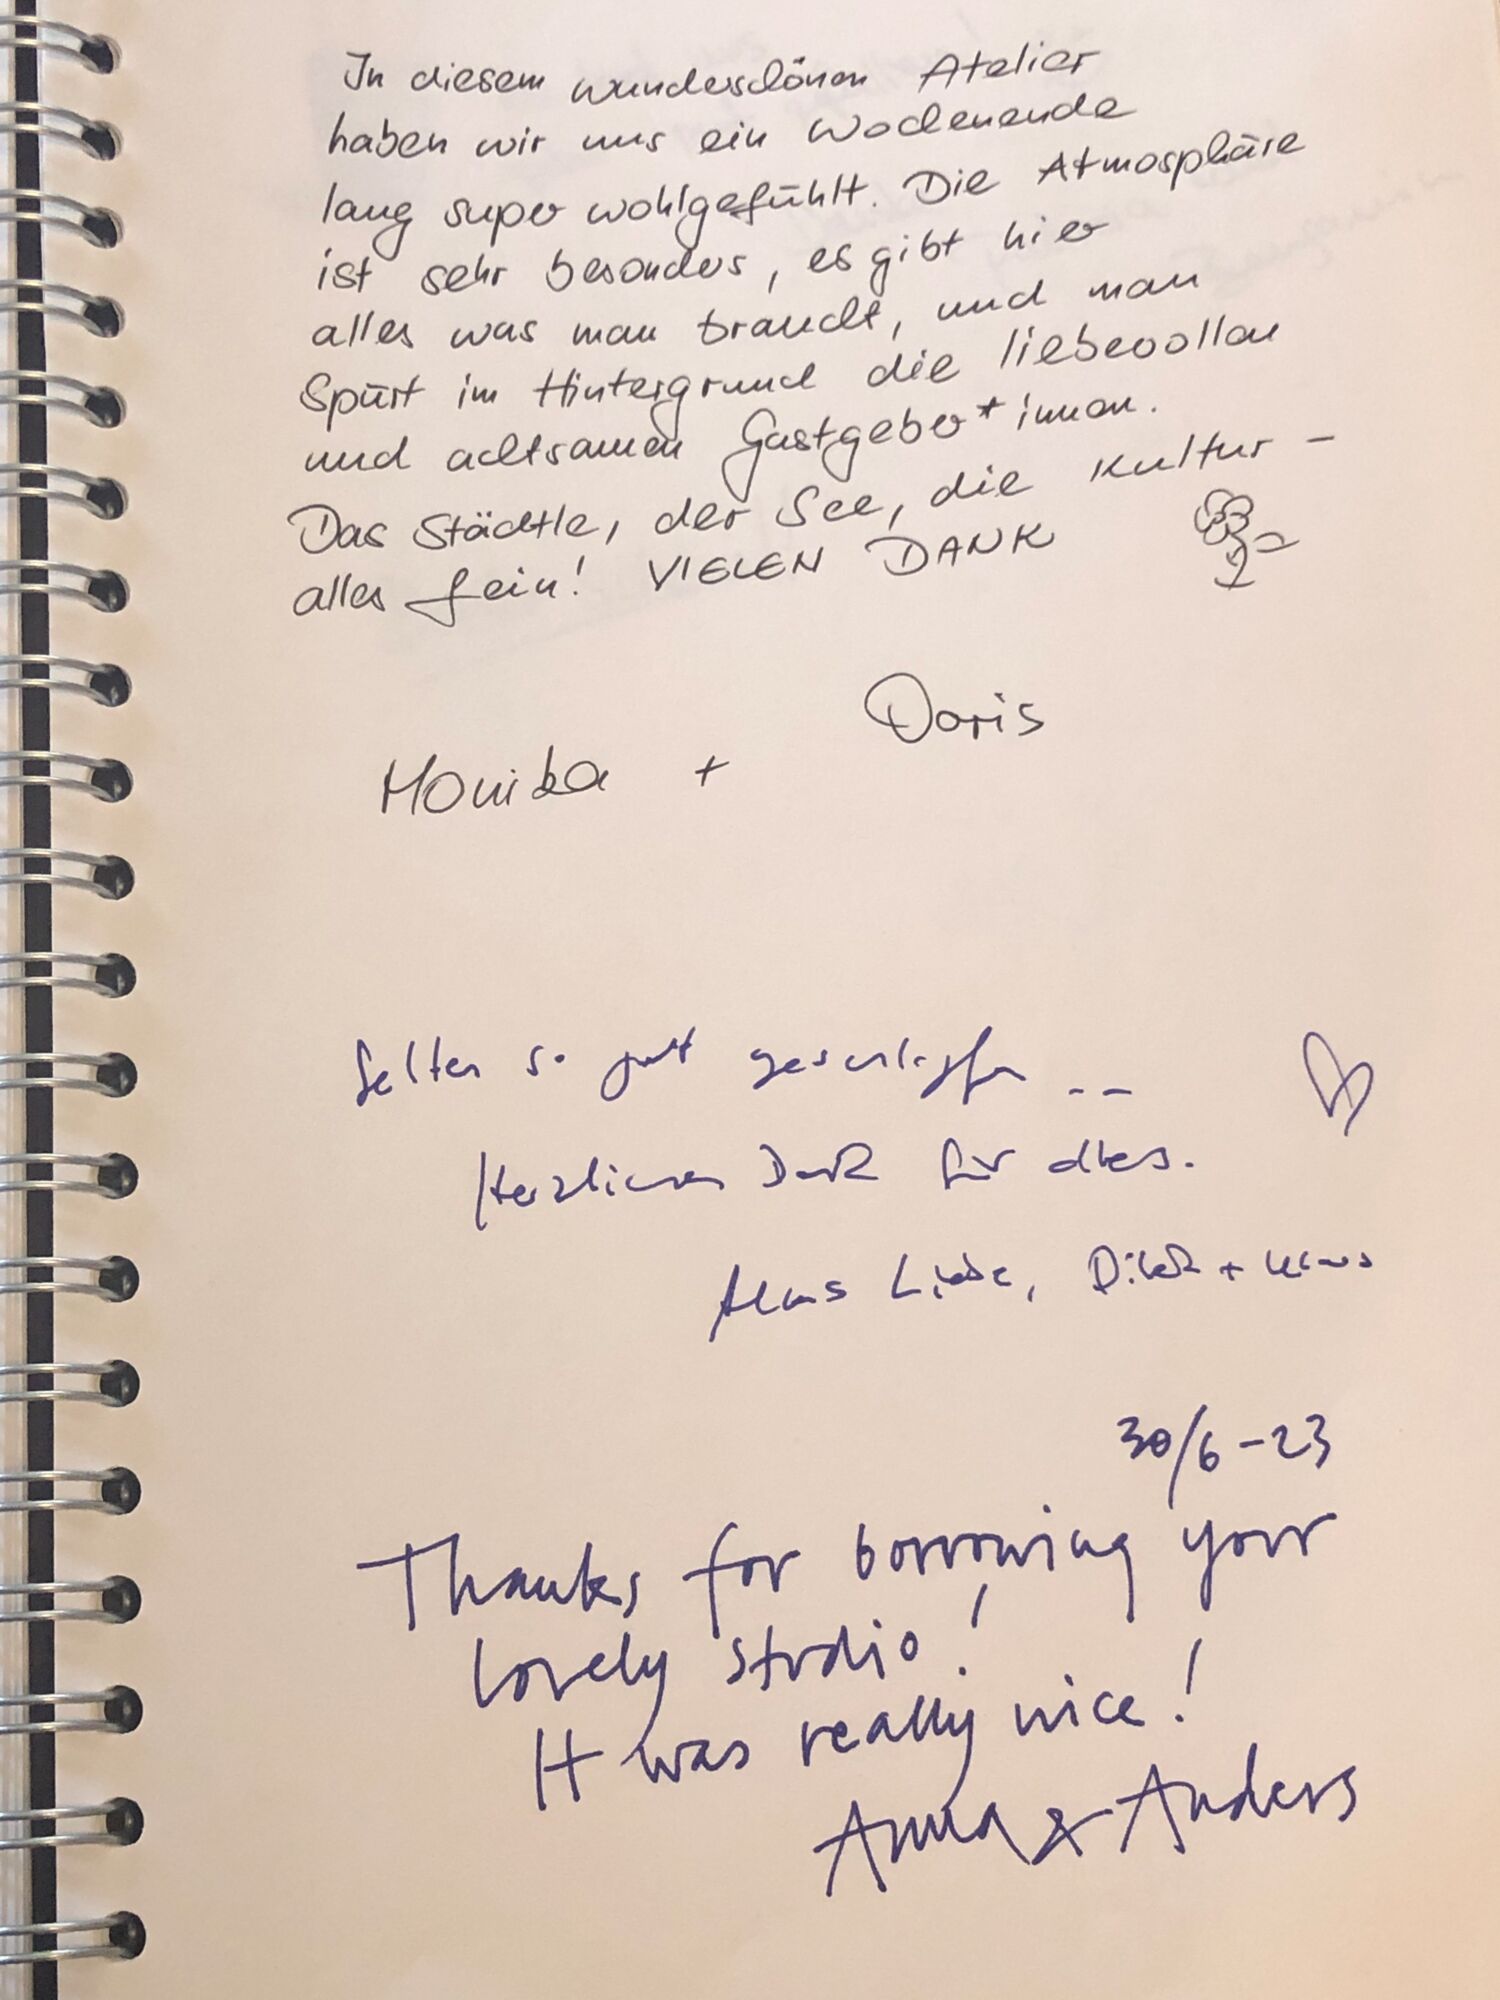 In diesem wunderschönen Atelier
haben wir uns ein Wochenende
lang super wohlgefühlt. Die Atmosphäre
ist sehr besonders, es gibt hier
alles was man braucht, und man
spürt im Hintergrund die liebevollen
und achtsamen Gastgeber*innen.
Das Städtle, der See, die Kultur -
alles fein! VIELEN DANK
Doris
Monika +
Selten so gut geschlafen --
Herzlichen Dank für alles.
Alles Liebe, +
30/6-23
Thanks for borrowing your
lovely studio!
It was really nice!
Anna & Anders